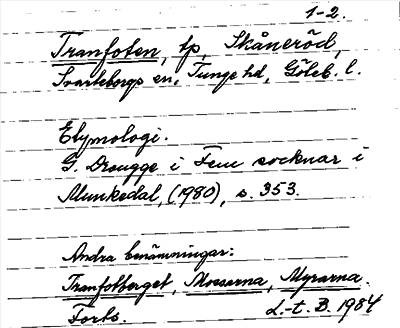 1-2.
Tranfoten, tp, Skåneröd,
Svarteborgs sn, Tunge hd, Göteb. l.
Etymologi.
G. Drougge i Fem socknar i
Munkedal, (1980), s. 353.
Andra benämningar:
Tranfotberget, Mossarna, Myrarna.
Forts.
L.-t. B. 1984